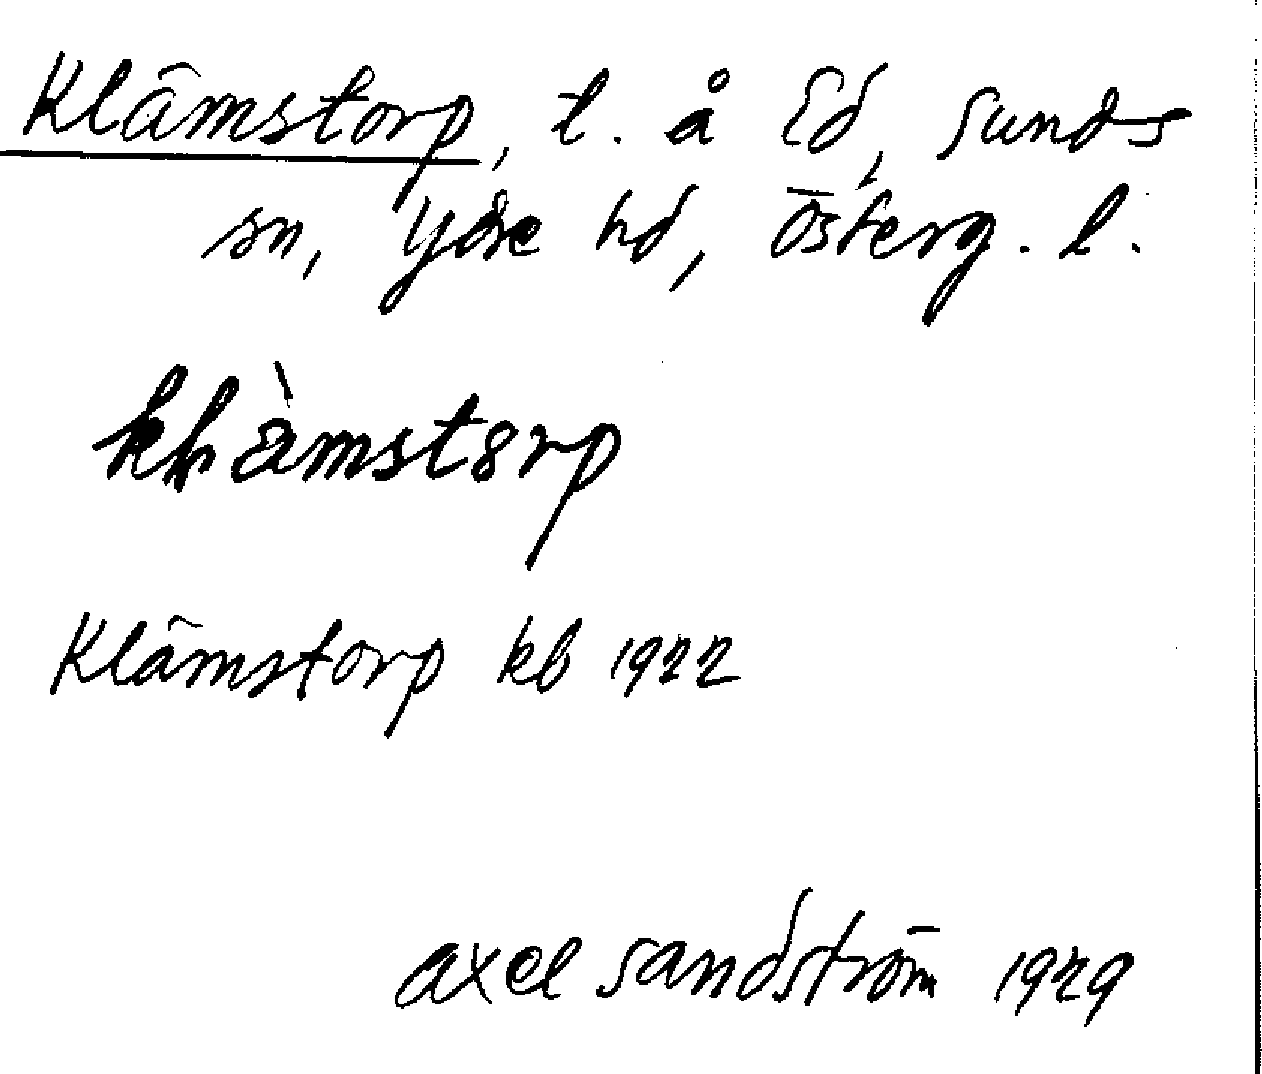 Klämstorp, t. å Ed, Sunds
sn, Ydre hd, Österg. l.
Klämstorp kb 1922
Axel Sandström 1929